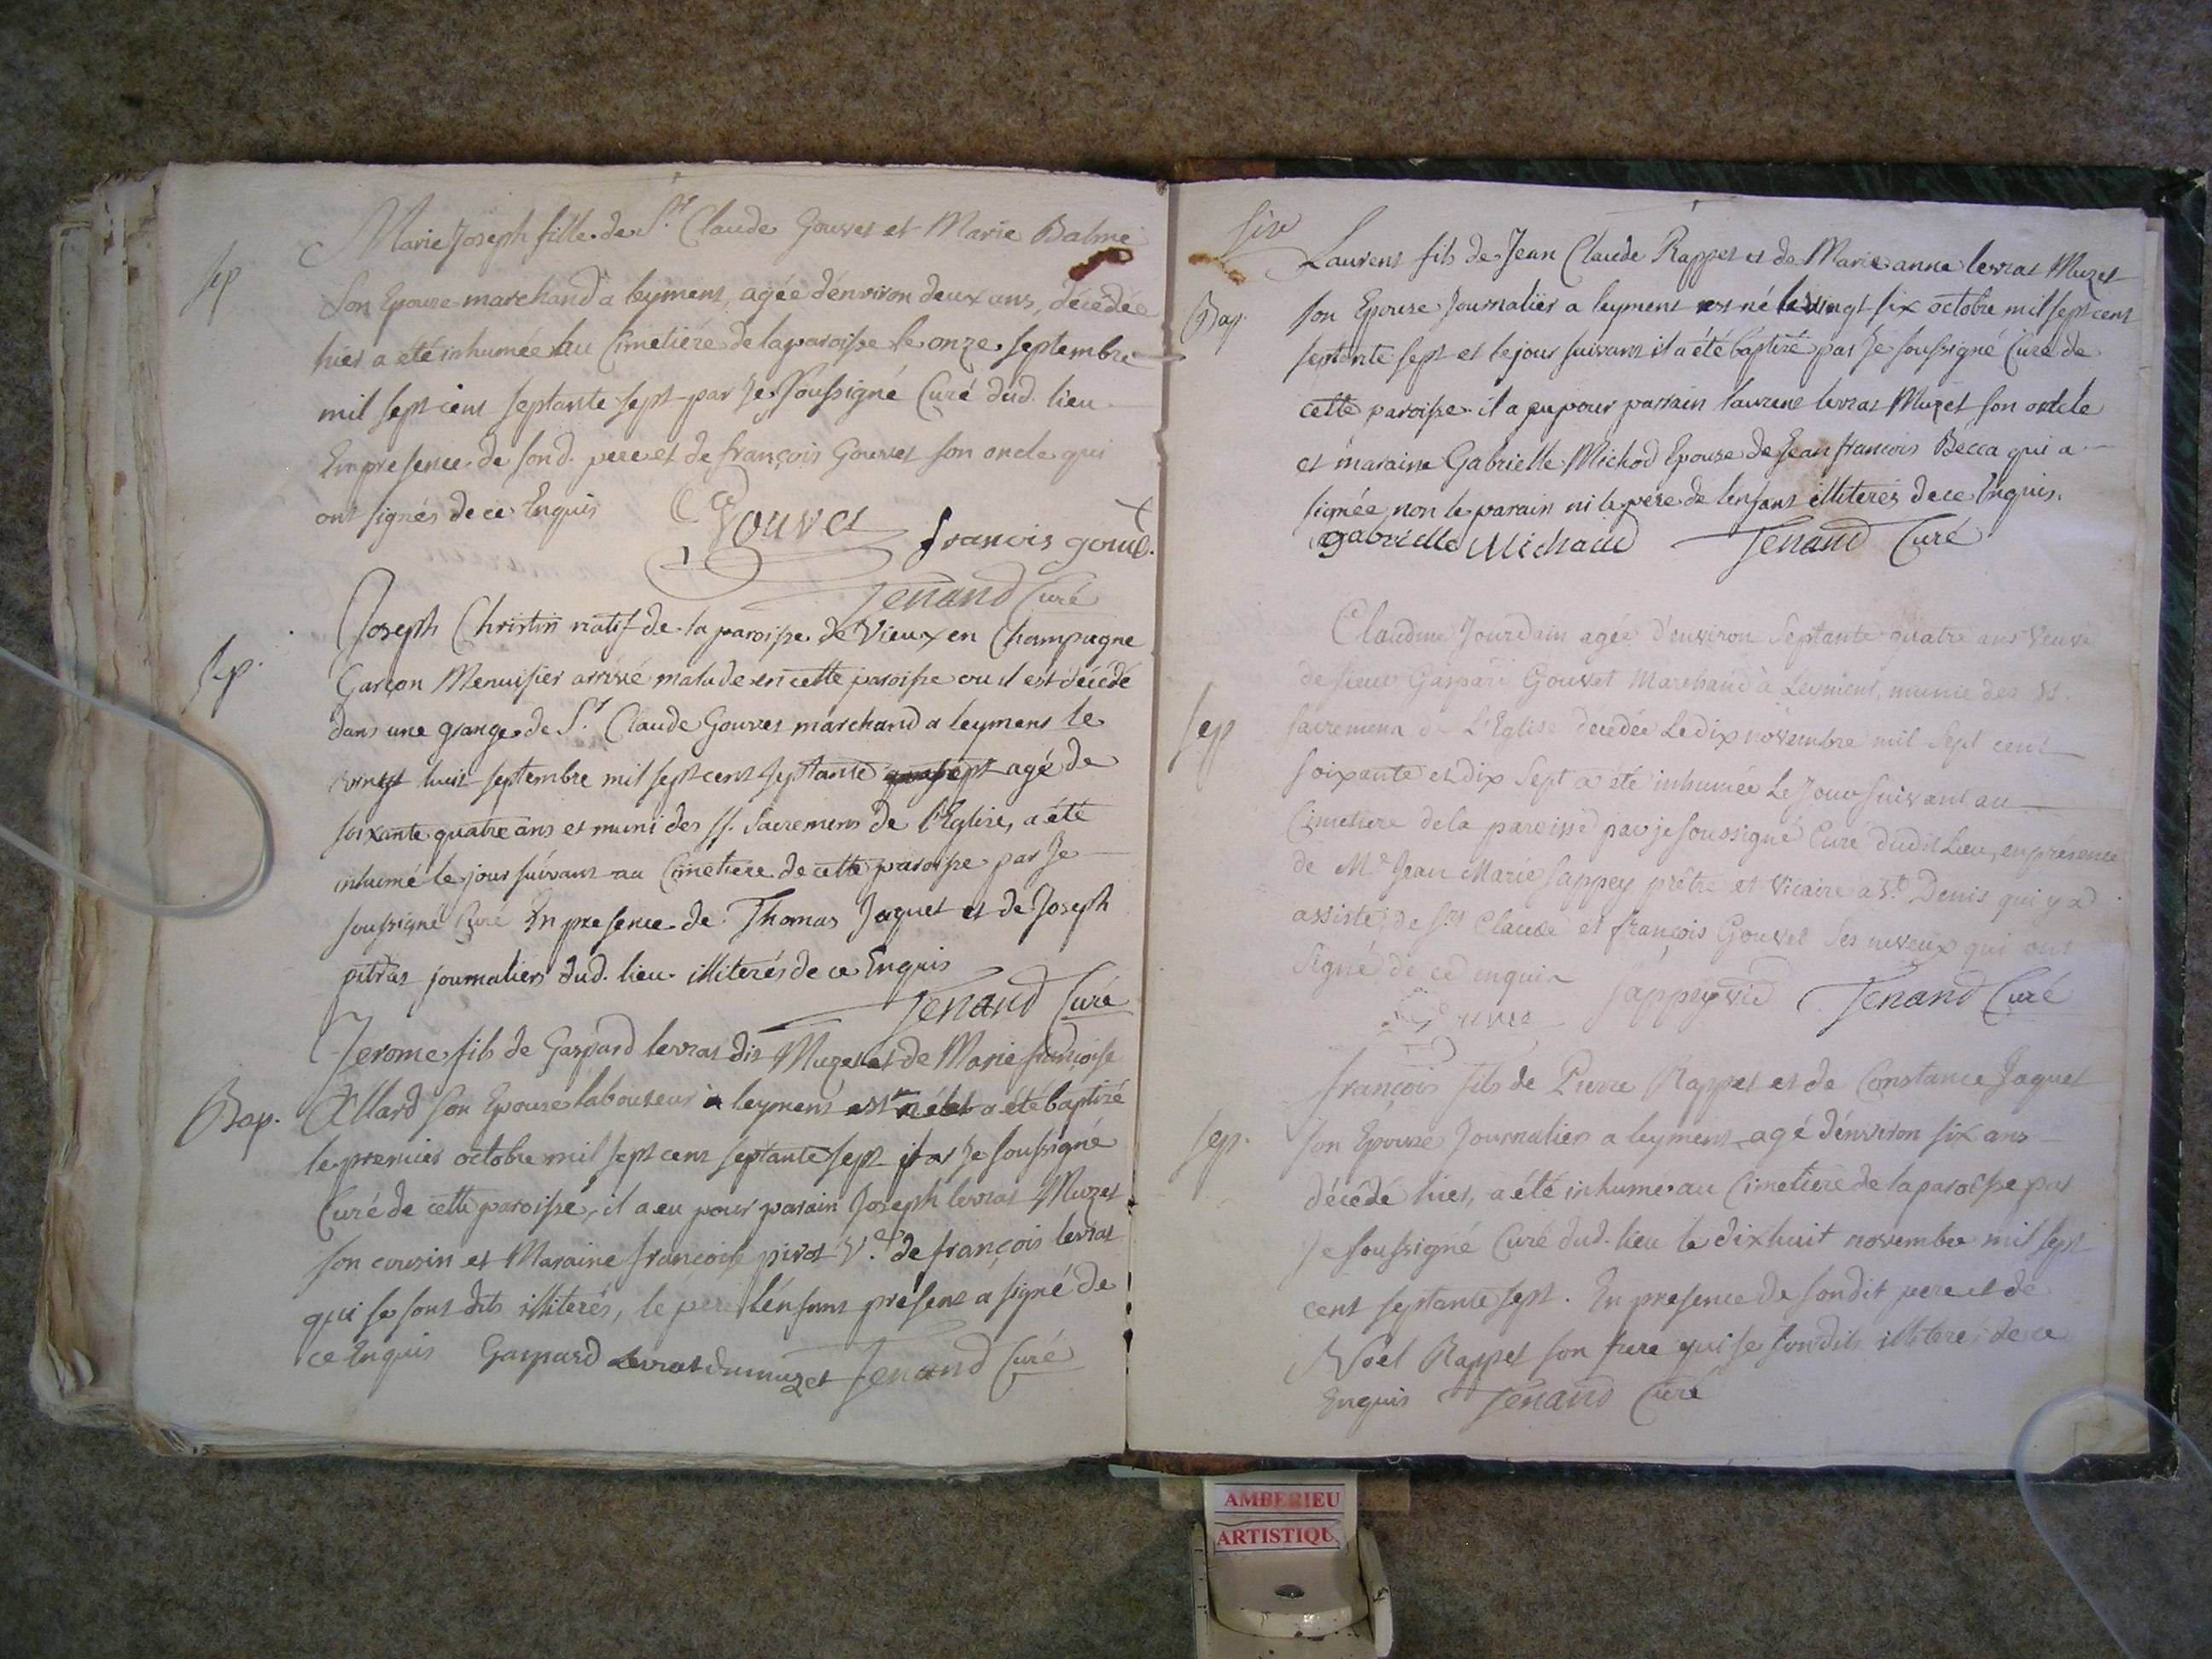 Marie Joseph fille de Sr. Claude Gouvet et Marie Balme
Sep
Son Epouse marchand a leyment, agée d'environ deux ans, décedée
hier a été inhumée au Cimetiére de la paroisse le onze septembre
mil sept cent septante sept par Je Soussigné Curé dud. lieu
En presence de sond. pere et de françois Gouvet son oncle qui
ont signés de ce Enquis
Gouvet
francois gouve.
Tenand Curé
Joseph Christin natif de la paroisse de Vieux en Champagne
Sep.
Garçon Menuisier arrivé malade en cette paroisse ou il est décédé
dans une grange de Sr. Claude Gouvet marchand a leyment le
vingt huit septembre mil sept cent septante sept agé de
soixante quatre ans et muni des SS. Sacremens de l'Eglise, a été
inhumé le jour suivant au Cimetiere de cette paroisse par Je
soussigné Curé En presence de Thomas Jaquet et de Joseph
pitras journaliers dud. lieu illiterés de ce Enquis
Tenand Curé
Jerome fils de Gaspard levrat dit Muzet et de Marie françoise
Bap.
Allard son Epouse laboureur a leyment est né et a été baptizé
le premier octobre mil sept cent septante sept par Je soussigné
Curé de cette paroisse, il a eu pour parain Joseph levrat Muzet
son cousin et Maraine françoise pivot Ve. de françois levrat
qui se sont dits illiterés, le pere l'enfant présent a signé de
ce Enquis Gaspard Levrat dumuzet Tenand Curé
six
Laurent fils de Jean Claude Rappet et de Marie anne levrat Muzet
Bap.
son Epouse Journalier a leyment est né le vingt six octobre mil sept cent
septante sept et le jour suivant il a été baptizé par Je soussigné Curé de
cette paroisse. il a eu pour parrain laurent levrat Muzet son oncle
et maraine Gabrielle Michod Epouse de Jean francois Becca qui a
signée non le parain ni le pere de lenfant illiterés de ce Enquis.
gabrielle Michaud Tenand Curé
Claudine Jourdain agée d'environ Septante quatre ans Veuve
de sieur Gaspard Gouvet Marchand à Leyment, munie des SS.
Sep
sacremens de L'Eglise decedée Le dix novembre mil Sept cent
soixante et dix Sept a été inhumée Le Jour suivant au
Cimetiere de la paroisse par je soussigné Curé dudit Lieu, en présence
de Me Jean Marie Sappey prêtre et Vicaire a St. Denis qui y a
assisté, de Srs Claude et françois Gouvet ses neveux qui ont
Signé de ce enquis
Sappey vic Tenand Curé
françois fils de Pierre Rappet et de Constance Jaquet
Sep.
son Epouse Journalier a leyment agé d'environ six ans
décédé hier, a été inhumé au Cimetiere de la paroisse par
Je soussigné Curé dud. lieu le dix huit novembre mil sept
cent septante sept. En presence de sondit pere et de
Noel Rappet son frere qui se sont dits illiterés de ce
Enquis Tenand Curé
AMBERIEU
ARTISTIQU